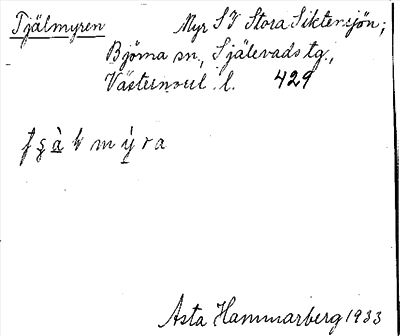 Tjälmyren Myr SV Stora Siktensjön;
Björna sn, Själevads tg.,
Västernorrl. l. 429
Asta Hammarberg 1933